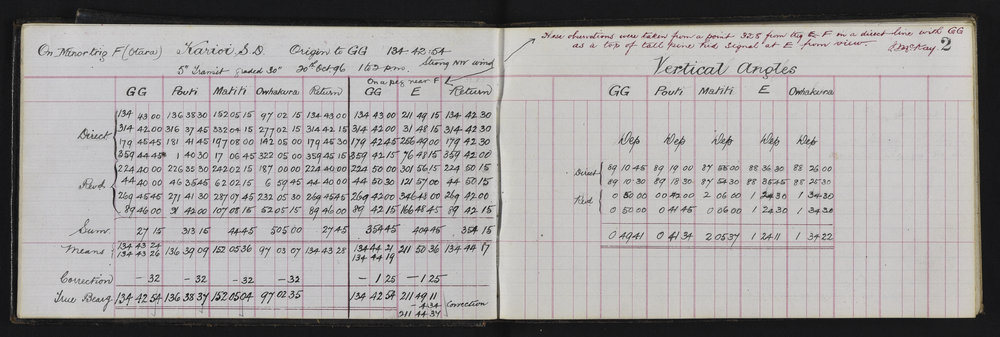 On Minor trig F (Otara) Karioi S.D. Origin to GG 134·42·54
5" Transit graded 30" 20th Oct 96 1 to 2 p.m. Strong NW wind
On a peg near F
GG Pouti Matiti Owhakura Return GG E Return
Direct
134 43 00 136 38 30 152 05 15 97 02 15 134 43 00 134 43 00 211 49 15 134 42 30
314 42 00 316 37 45 332 04 15 277 02 15 314 42 15 314 42 00 31 48 15 314 42 30
179 45 45 181 41 45 197 08 00 142 05 00 179 45 30 179 42 45 256 49 00 179 42 30
359 44 45 1 40 30 17 06 45 322 05 00 359 45 15 359 42 15 76 48 15 359 42 00
Revd
224 40 00 226 35 30 242 02 15 187 00 00 224 40 00 224 50 00 301 56 15 224 50 15
44 40 00 46 35 45 62 02 15 6 59 45 44 40 00 44 50 30 121 57 00 44 50 15
269 45 45 271 41 30 287 07 45 232 05 30 269 45 45 269 42 00 346 48 00 269 42 00
89 46 00 91 42 00 107 08 15 52 05 15 89 46 00 89 42 15 166 48 45 89 42 15
Sum 27 15 313 15 44 45 505 00 27 45 354 45 404 45 354 15
Means 134 43 24 136 39 09 152 05 36 97 03 07 134 43 28 134 44 21 211 50 36 134 44 17
134 43 26 134 44 19
Correction – 32 – 32 – 32 – 32 – 1 25 – 1 25
True Bearg 134 42 54 136 38 37 152 05 04 97 02 35 134 42 54 211 49 11
– 4·34 Correction
211 44 37
These observations were taken from a point 32·8 from trig F in a direct line with GG
as a top of tall pine hid signal at E from view.
2
Vertical Angles
GG Pouti Matiti E Owhakura
Dep Dep Dep Dep Dep
Direct 89 10 45 89 19 00 87 55 00 88 36 30 88 26 00
89 10 30 89 18 30 87 54 30 88 35 45 88 25 30
Red 0 50 00 0 42 00 2 06 00 1 24 30 1 34 30
0 50 00 0 41 45 2 06 00 1 24 30 1 34 30
0 49 41 0 41 34 2 05 37 1 24 11 1 34 22